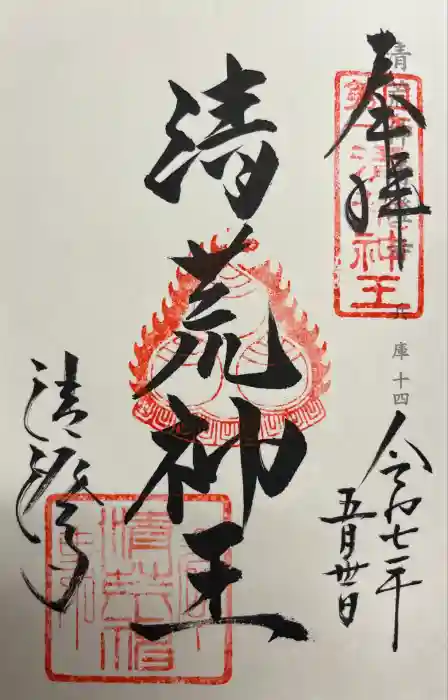 清荒神清澄寺 兵庫十四
奉拝
令和七年
五月卅日
清荒神王
清澄寺